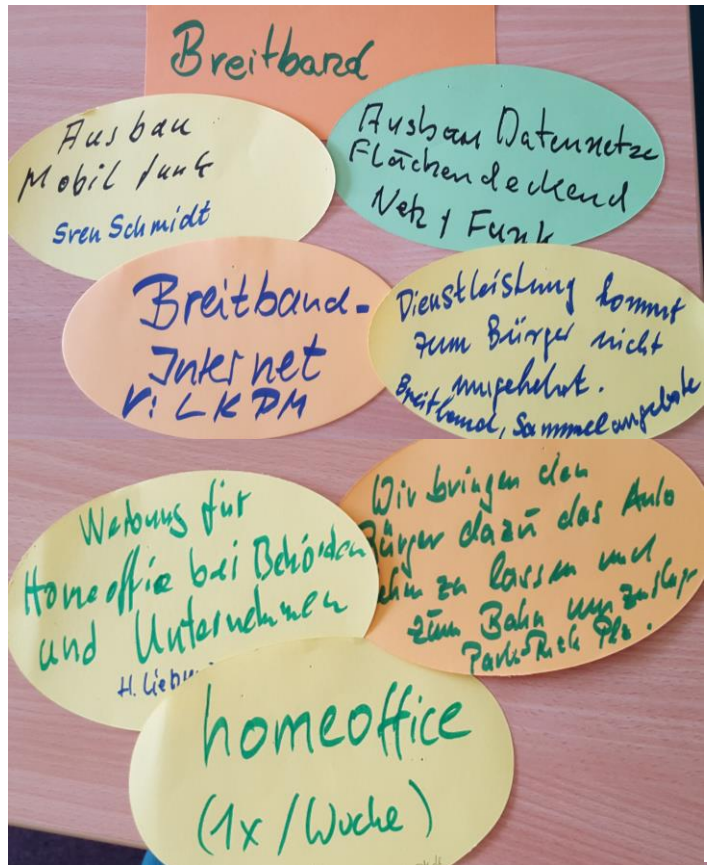 Breitband
Ausbau
Mobilfunk
Sven Schmidt
Ausbau Datennetze
Flächendeckend
Netz / Funk
Breitband-
Internet
V: LKPM
Dienstleistung kommt
zum Bürger nicht
umgekehrt.
Breitband, Sammelangebote
Werbung für
Homeoffice bei Behörden
und Unternehmen
H.
Wir bringen den
Bürger dazu das Auto
zu lassen und
zum Bahn umzusteigen
Park
homeoffice
(1x / Woche)